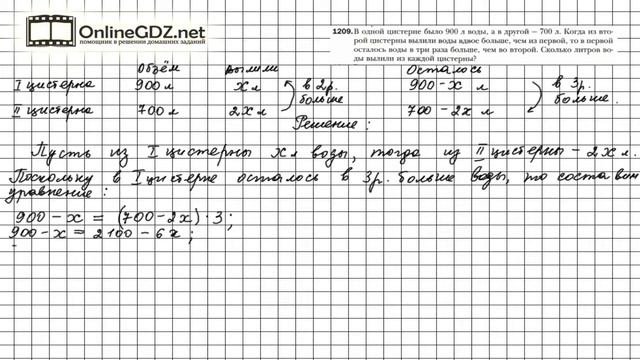 OnlineGDZ.net
ПОМОЩНИК В РЕШЕНИИ ДОМАШНИХ ЗАДАНИЙ
1209. В одной цистерне было 900 л воды, а в другой – 700 л. Когда из вто-
рой цистерны вылили воды вдвое больше, чем из первой, то в первой
осталось воды в три раза больше, чем во второй. Сколько литров во-
ды вылили из каждой цистерны?
Объём Вылили Осталось
I цистерна 900 л x л в 2 р. больше 900 - x л в 3 р. больше.
II цистерна 700 л 2x л 700 - 2x л
Решение:
Пусть из I цистерны x л воды, тогда из II цистерны - 2x л.
Поскольку в I цистерне осталось в 3 р. больше воды, то составим
уравнение:
900 - x = (700 - 2x) · 3;
900 - x = 2100 - 6x;